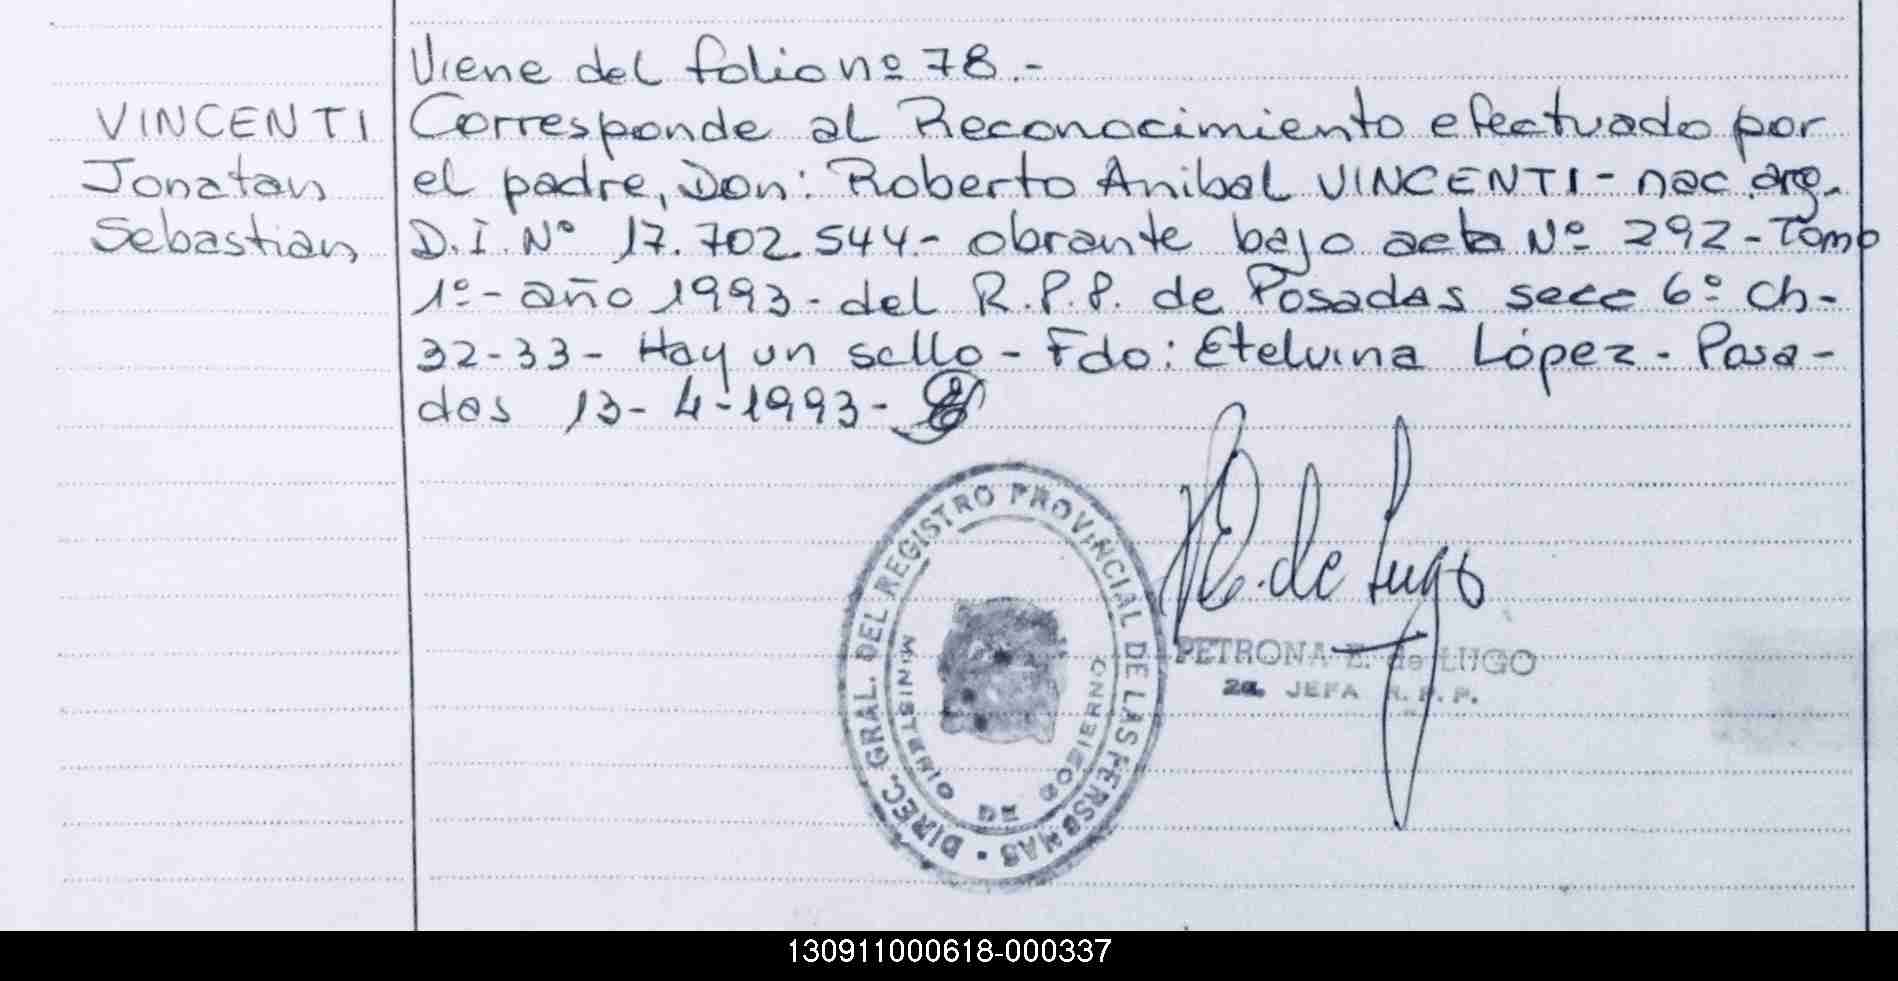 Viene del folio nº 78.-
VINCENTI Corresponde al Reconocimiento efectuado por
Jonatan el padre, Don: Roberto Anibal VINCENTI - nac. arg.
Sebastian D.I. Nº 17.702.544.- obrante bajo acta Nº 292 - Tomo
1º - año 1993 - del R.P.P. de Posadas secc 6º Ch-
32-33 - Hay un sello - Fdo: Etelvina López - Posa-
das 13-4-1993-
DIREC. GRAL. DEL REGISTRO PROVINCIAL DE LAS PERSONAS
MINISTERIO DE GOBIERNO
P E. de Lugo
PETRONA E. de LUGO
2a. JEFA R.P.P.
130911000618-000337